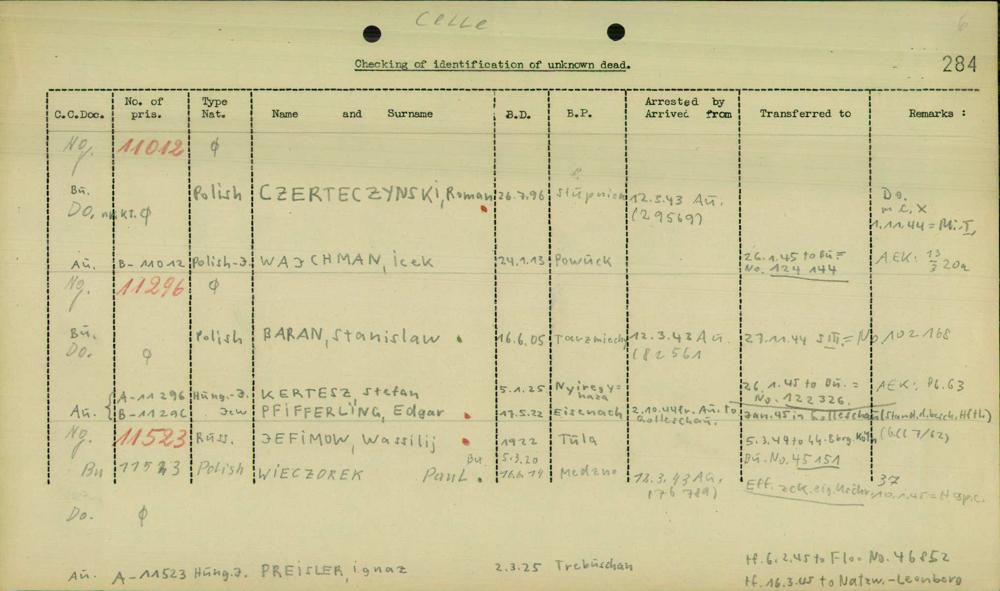 Celle
6
284
Checking of identification of unknown dead.
C.C.Doc. No. of pris. Type Nat. Name and Surname B.D. B.P. Arrested by Arrived from Transferred to Remarks :
Ng. 11012 ϕ
Bu. Polish CZERTECZYNSKI, Roman 26.7.96 Stupnica 12.3.43 Au. Do.
Do. ϕ (29569) 1.11.44 =
Au. B-11012 Polish-J. WAJCHMAN, icek 24.1.13 26.1.45 to Bu = AEK: 13/3 20a
No. 124 144
Ng. 11296 ϕ
Bu. Polish BARAN, Stanislaw 16.6.05 12.3.43 Au. 27.11.44 SIII = No 102168
Do. ϕ (82561
A-11296 Hung.-J. KERTESZ, Stefan 5.1.25 Nyiregyhaza 26.1.45 to Bu. = AEK: Pg.63
No. 122326.
Au. B-11296 Jew PFIFFERLING, Edgar 17.5.22 Eisenach 2.10.44 fr. Au. to Golleschau. Jan. 45 in Golleschau
Ng. 11523 Russ. JEFIMOW, Wassilij 1922 Tula 5.3.44 to
Bu. 5.3.20 Bu. No. 45151
Bu 11523 Polish WIECZOREK Paul. 16.6.14 13.3.43 Au. 37
Do. ϕ
Au. A-11523 Hung.J. PREISLER, ignaz 2.3.25 Trebuschan tf. 6.2.45 to Flo. No. 46852
tf. 16.3.45 to Natzw.-Leonberg